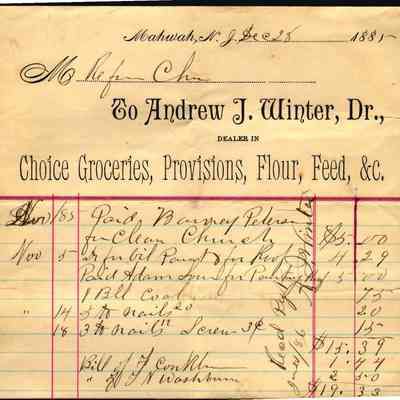 Mahwah, N. J. Dec 28 1885
M Ref'm Chu
To Andrew J. Winter, Dr.,
DEALER IN
Choice Groceries, Provisions, Flour, Feed, &c.
Nov /85 Paid Barney Peterson
for Clean Church $5.00
Nov 5 for Oil Paint & for Rev 4 29
Paid Adam for Painting 5 00
1 Bbl 75
" 14 5 lb nails 20 20
18 3 lb nails 11 Screws 3¢ 15
$15.39
Bill of J Conklin 1.44
" of N Washburn 2 50
$19.33
Recd Pay
A J Winter